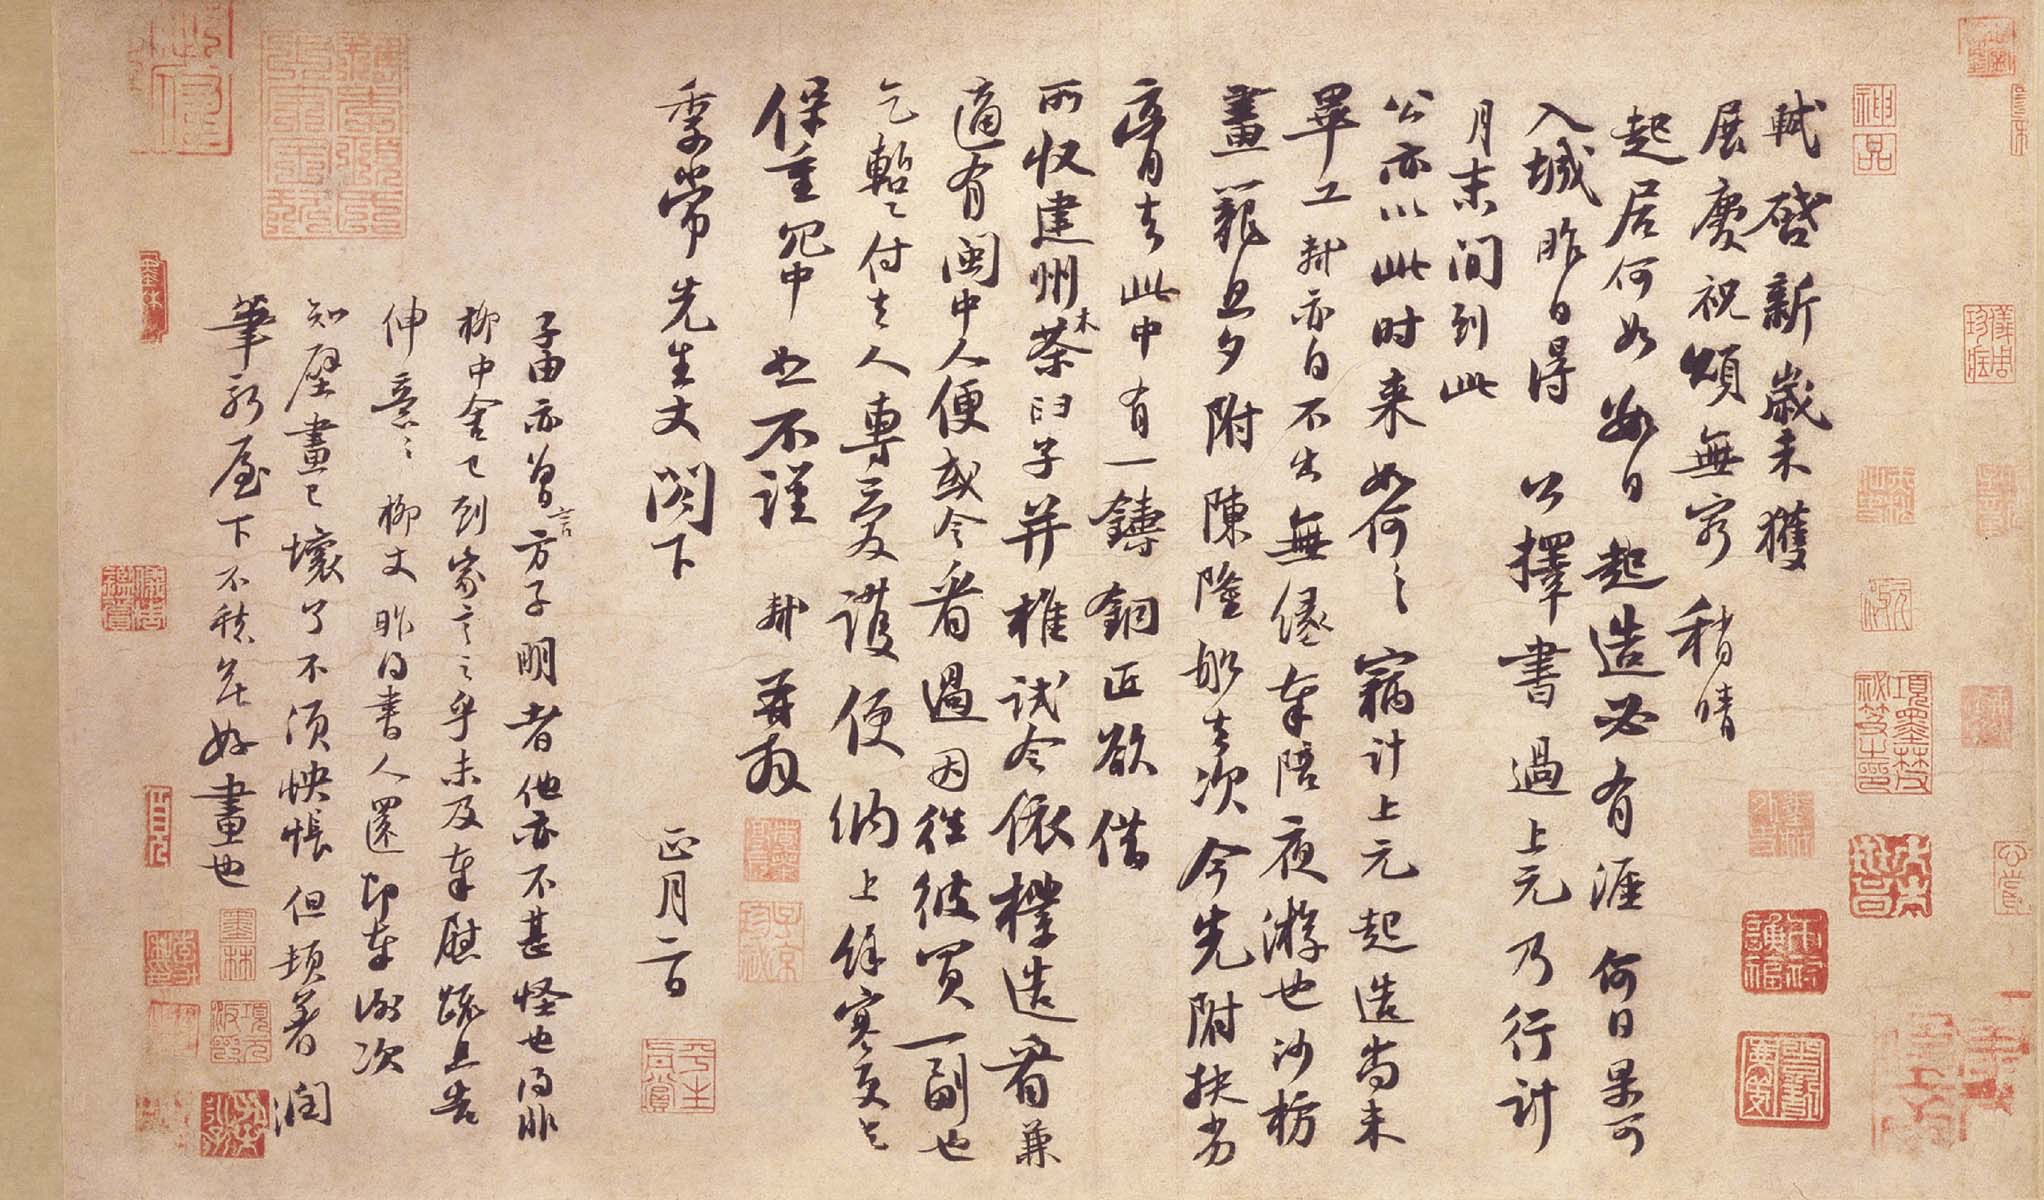 軾啓新歲未獲
展慶祝頌無窮稍晴
起居何如數日起造必有涯何日果可
入城昨日得公擇書過上元乃行計
月末間到此
公亦以此时来如何〻竊计上元起造尚未
畢工軾亦自不出無緣奉陪夜游也沙枋
畫籠旦夕附陳隆舩去次今先附扶劣
膏去此中有一鑄銅匠欲借
所收建州木茶臼子并椎試令依樣造看兼
適有閩中人便或令看過因往彼買一副也
乞暫〻付去人專爱護便納上餘寒更乞
保重冗中恕不謹軾再拜
季常先生丈閤下
正月二日
子由亦曾言方子明者他亦不甚怪也得非
柳中舍已到家言之乎未及奉慰疏且告
伸意〻柳丈昨得書人還即奉谢次
知壁畫已壞了不須怏悵但頓著潤
筆新屋下不愁無好畫也
神品
項墨林
墨林
子京
平生真賞